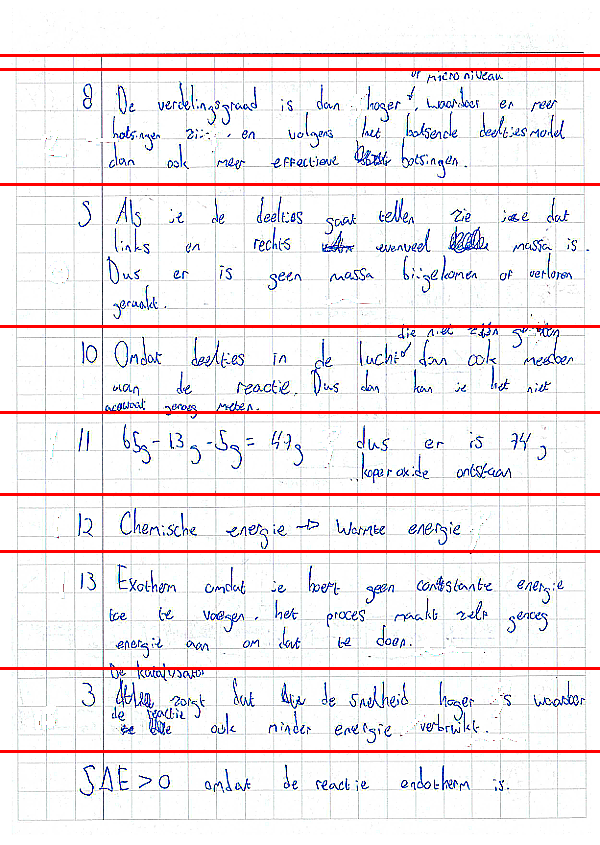 op microniveau
8 De verdelingsgraad is dan hoger, waardoor er meer
botsingen zijn en volgens het botsende deeltjesmodel
dan ook meer effectieve botsingen.
9 Als je de deeltjes gaat tellen zie je dat
links en rechts evenveel massa is.
Dus er is geen massa bijgekomen of verloren
geraakt.
die niet zijn
10 Omdat deeltjes in de lucht dan ook meedoen
aan de reactie. Dus dan kan je het niet
genoeg meten.
11 65g - 13g - 5g = 47g dus er is 74 g
koperoxide ontstaan
12 Chemische energie -> warmte energie
13 Exotherm omdat je hoeft geen constante energie
toe te voegen. het proces maakt zelf genoeg
energie aan om dat te doen.
De katalysator
3 zorgt dat de snelheid hoger is waardoor
de reactie
ook minder energie verbruikt.
5 ΔE > 0 omdat de reactie endotherm is.